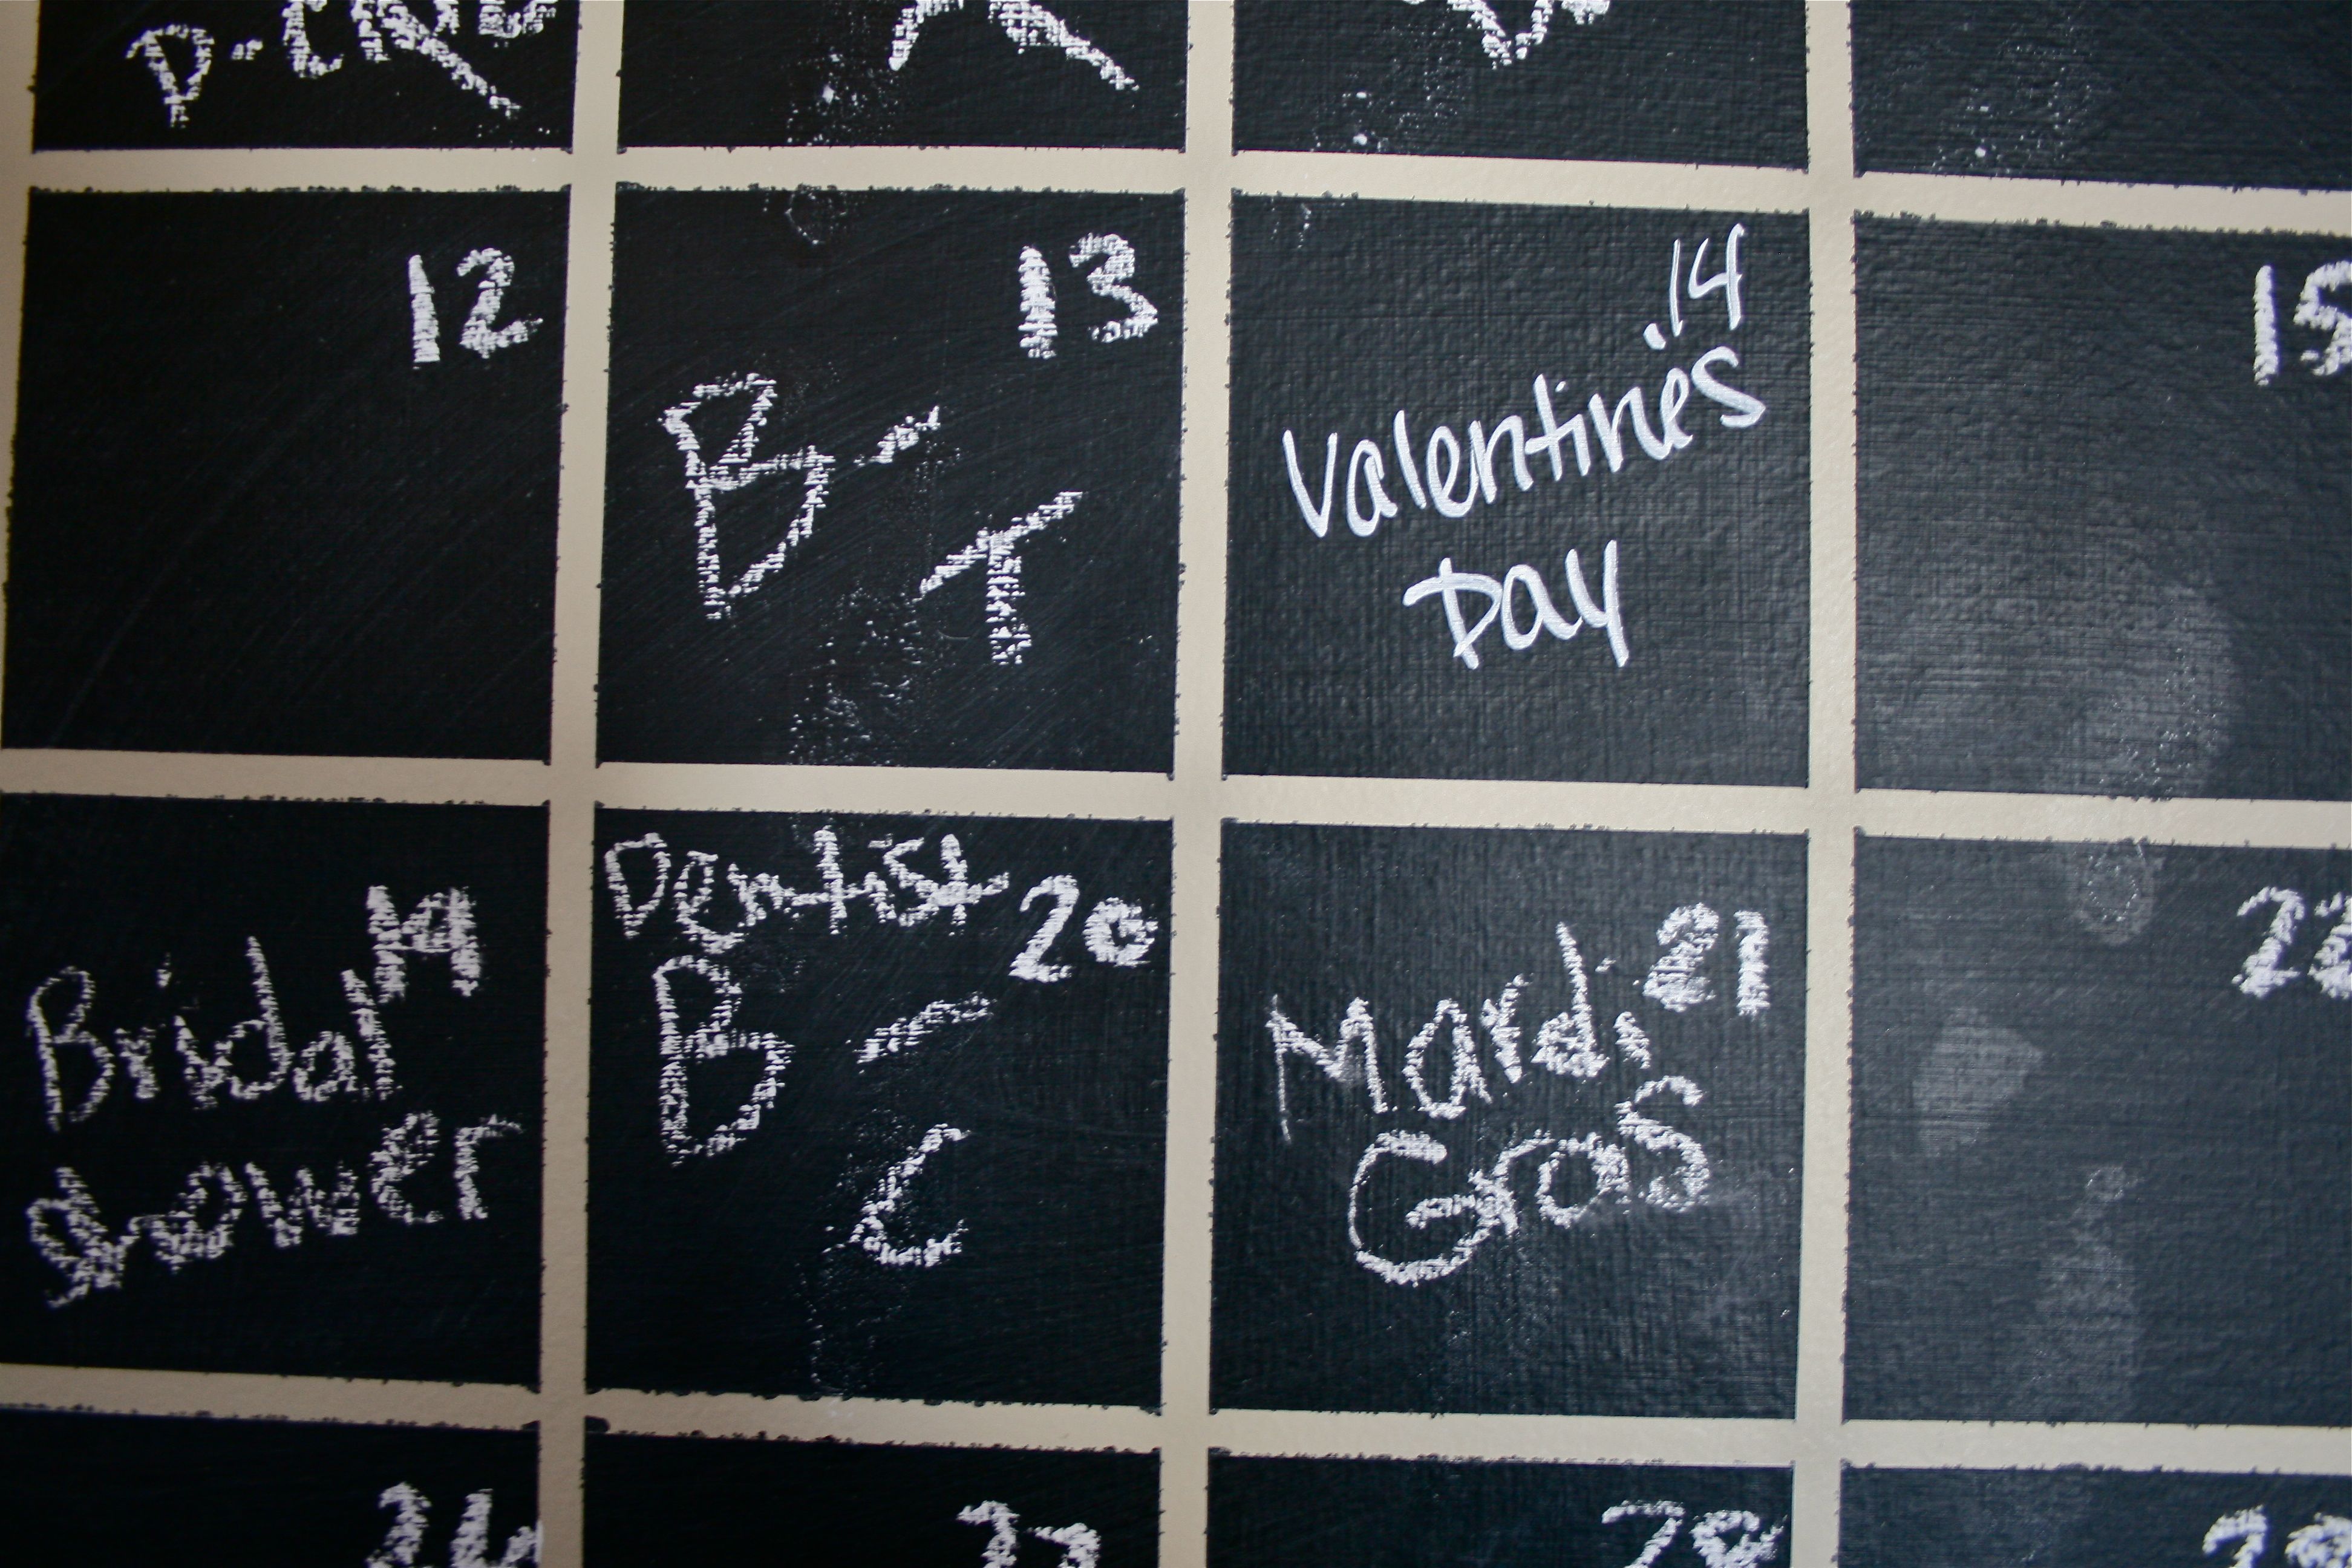 12
13
B -
T
14
Valentine's
Day
15
19
Bridal
Shower
Dentist
20
B -
C
21
Mardi
Gras
22
26
27
28
29